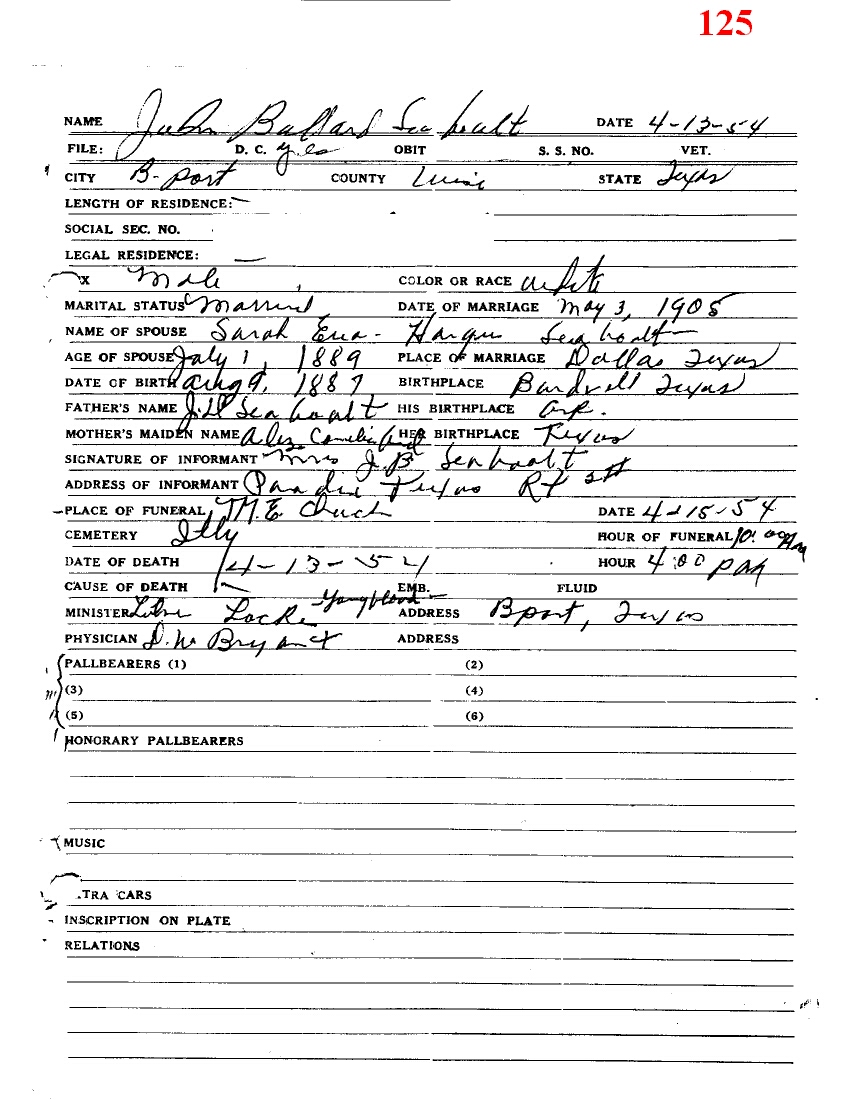 125
NAME John Ballard Seaboalt DATE 4-13-54
FILE: D. C. yes OBIT S. S. NO. VET.
CITY B-port COUNTY Wise STATE Texas
LENGTH OF RESIDENCE: —
SOCIAL SEC. NO.
LEGAL RESIDENCE: —
X Male COLOR OR RACE white
MARITAL STATUS Married DATE OF MARRIAGE May 3, 1905
NAME OF SPOUSE Sarah - Seaboalt
AGE OF SPOUSE July 1, 1889 PLACE OF MARRIAGE Dallas Texas
DATE OF BIRTH Aug 9, 1887 BIRTHPLACE Texas
FATHER'S NAME Seaboalt HIS BIRTHPLACE Ark.
MOTHER'S MAIDEN NAME HER BIRTHPLACE Texas
SIGNATURE OF INFORMANT Mrs J.B Seaboalt
ADDRESS OF INFORMANT Texas Rt
PLACE OF FUNERAL M.E. Church DATE 4-15-54
CEMETERY HOUR OF FUNERAL 10:00
DATE OF DEATH 4-13-54 HOUR 4:00 PM
CAUSE OF DEATH EMB. FLUID
Youngblood
MINISTER Locke ADDRESS Bport, Texas
PHYSICIAN Bryant ADDRESS
PALLBEARERS (1) (2)
(3) (4)
(5) (6)
HONORARY PALLBEARERS
MUSIC
TRA CARS
INSCRIPTION ON PLATE
RELATIONS